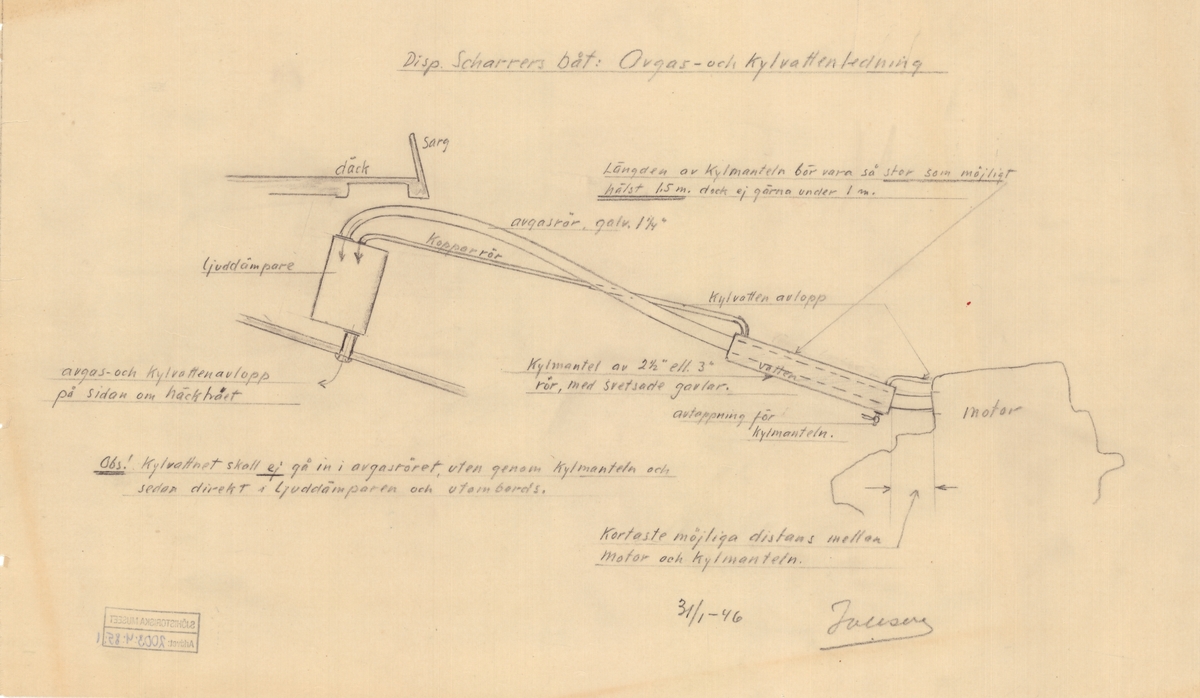 Disp. Scharrers båt: Avgas-och Kylvattenledning
Sarg
däck
Längden av Kylmanteln bör vara så stor som möjligt
hälst 1.5 m. dock ej gärna under 1 m.
avgasrör, galv. 1¼"
Kopparrör
Ljuddämpare
Kylvatten avlopp
Kylmantel av 2½" ell. 3"
rör, med svetsade gavlar.
vatten
avgas-och Kylvattenavlopp
på sidan om häckbået
avtappning för
Kylmanteln.
motor
Obs! Kylvattnet skall ej gå in i avgasröret, uten genom Kylmanteln och
sedan direkt i Ljuddämparen och utombords.
Kortaste möjliga distans mellan
Motor och Kylmanteln.
31/1-46
SJÖHISTORISKA MUSEET